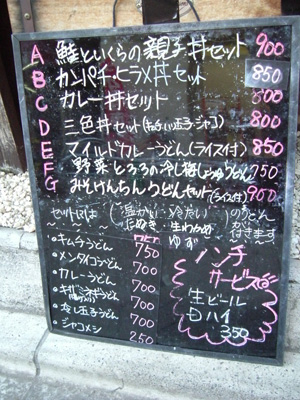 A 鮭といくらの親子丼セット 900
B カンパチ・ヒラメ丼セット 850
C カレー丼セット 800
D 三色丼セット(キムチ・い玉子・ジャコ) 800
E マイルドカレーうどん(ライス付) 850
F 野菜とろろの冷し梅しょうゆうどん 750
G みそけんちんうどんセット(ライス付) 900
セットには (温かい・冷たい)のうどん
たぬき 生わかめ ゆず が付きます
・キムチうどん 750
・メンタイコうどん 750
・カレーうどん 700
うどん 700
・冷し玉子うどん 700
・ジャコメシ 250
ハンチ
サービス
生ビール
酎ハイ
350